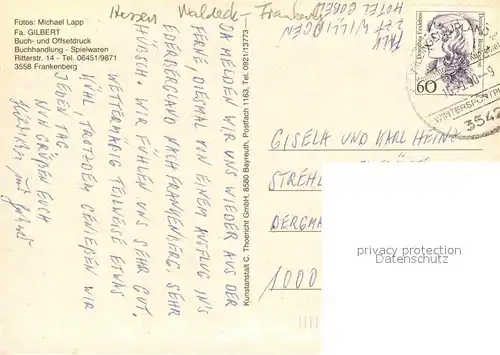 Hessen Waldeck - Frankenberg
Fotos: Michael Lapp
Fa. GILBERT
Buch- und Offsetdruck
Buchhandlung - Spielwaren
Ritterstr. 14 - Tel. 06451/9871
3558 Frankenberg
DA MELDEN WIR UNS WIEDER AUS DER
FERNE, DIESMAL VON EINEM AUSFLUG IN'S
EDERBERGLAND NACH FRANKENBERG. SEHR
HÜBSCH. WIR FÜHLEN UNS SEHR GUT.
WETTERMÄßIG TEILWEISE ETWAS
KÜHL, TROTZDEM GENIEßEN WIR
JEDEN TAG.
NUN GRÜßEN EUCH
und
Kunstanstalt C. Thoericht GmbH, 8580 Bayreuth, Postfach 1163, Tel. 0921/13773
HOTEL
ZZT WILLINGEN
60
WINTERSPORT
3542
GISELA UND KARL HEINZ
STREHL
BERGMA
1000
privacy protection
Datenschutz